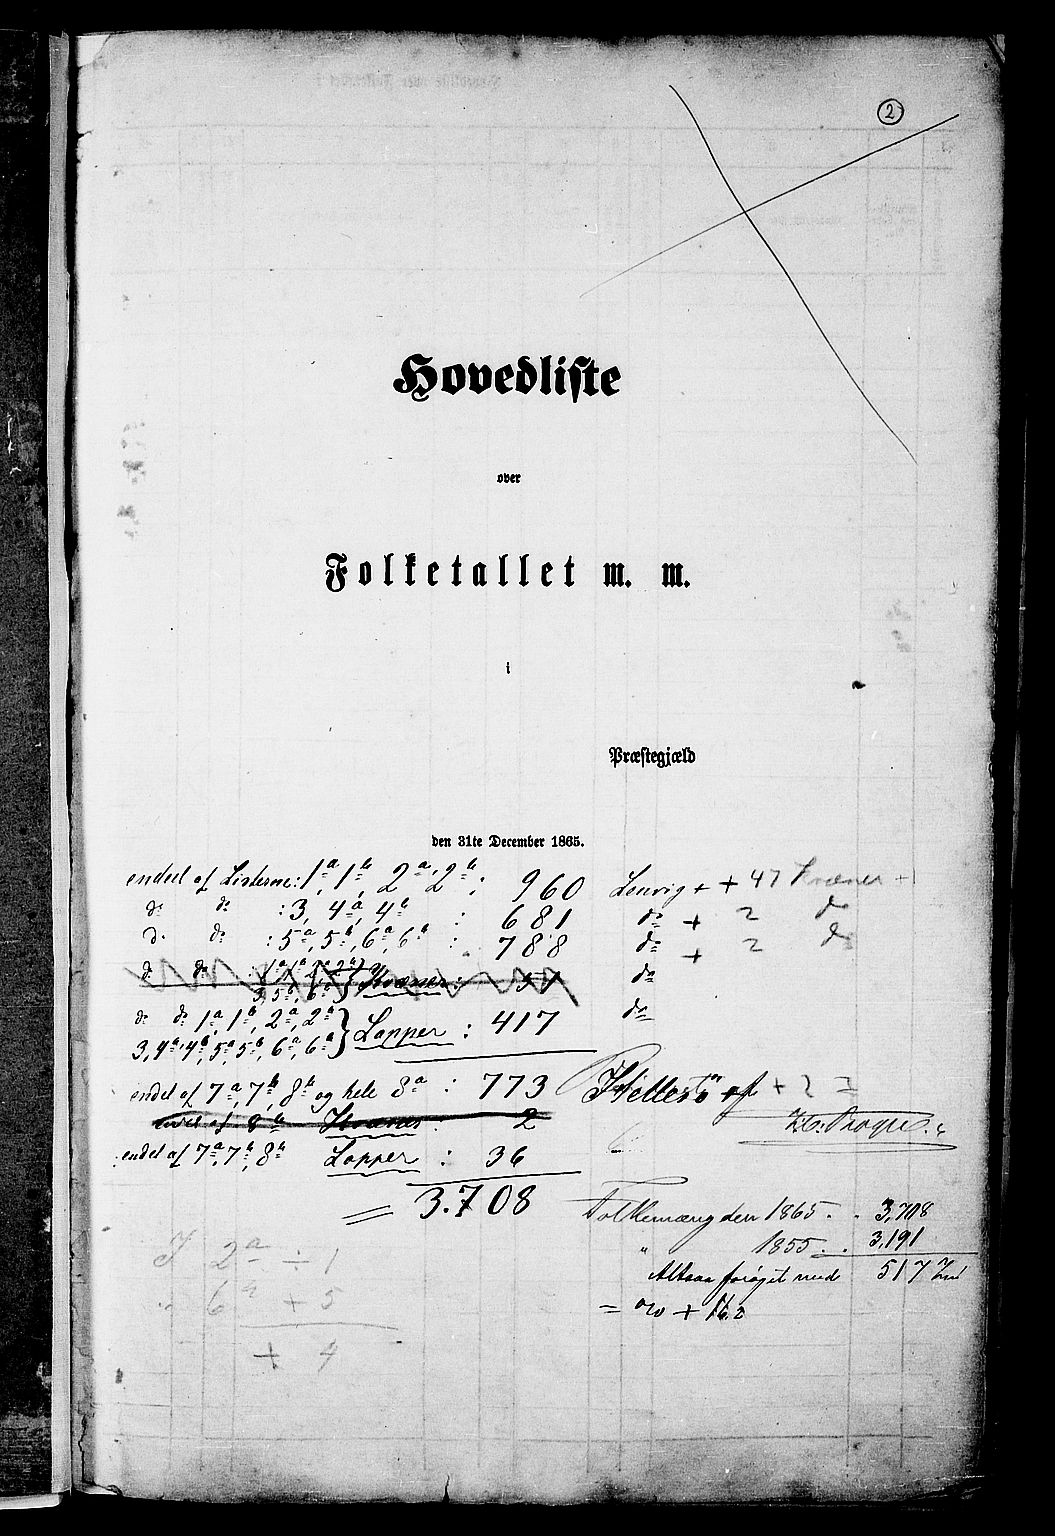 2
Hovedliste
over
Folketallet m. m.
i
Præstegjæld
den 31te December 1865.
endeel af Listerne: 1a, 1b, 2a, 2b: 960 Lenvig + + 47 Kvæner
do do : 3, 4a, 4b : 681 do + 2 do
do do : 5a, 5b, 6a, 6b : 788 do + 2 do
do do : 1a, 1b, 2a, 2b Kvæner: 51 do
5, 5b, 6b
do do 1a, 1b, 2a, 2b
3, 4a, 4b, 5a, 5b, 6a, 6b } Lapper : 417 do
endel af 7a, 7b, 8b og hele 8a : 773 Hillesø + 2
endel af 8b Kvæner: 2
endel af 7a, 7b, 8b Lapper : 36
= 3.708
Folkemængden 1865 . . 3,708
" 1855 . . 3,191
Altsaa forøget med 517 Ind
= o/o + 16.2
I 2a ÷ 1
" 6a + 5
+ 4